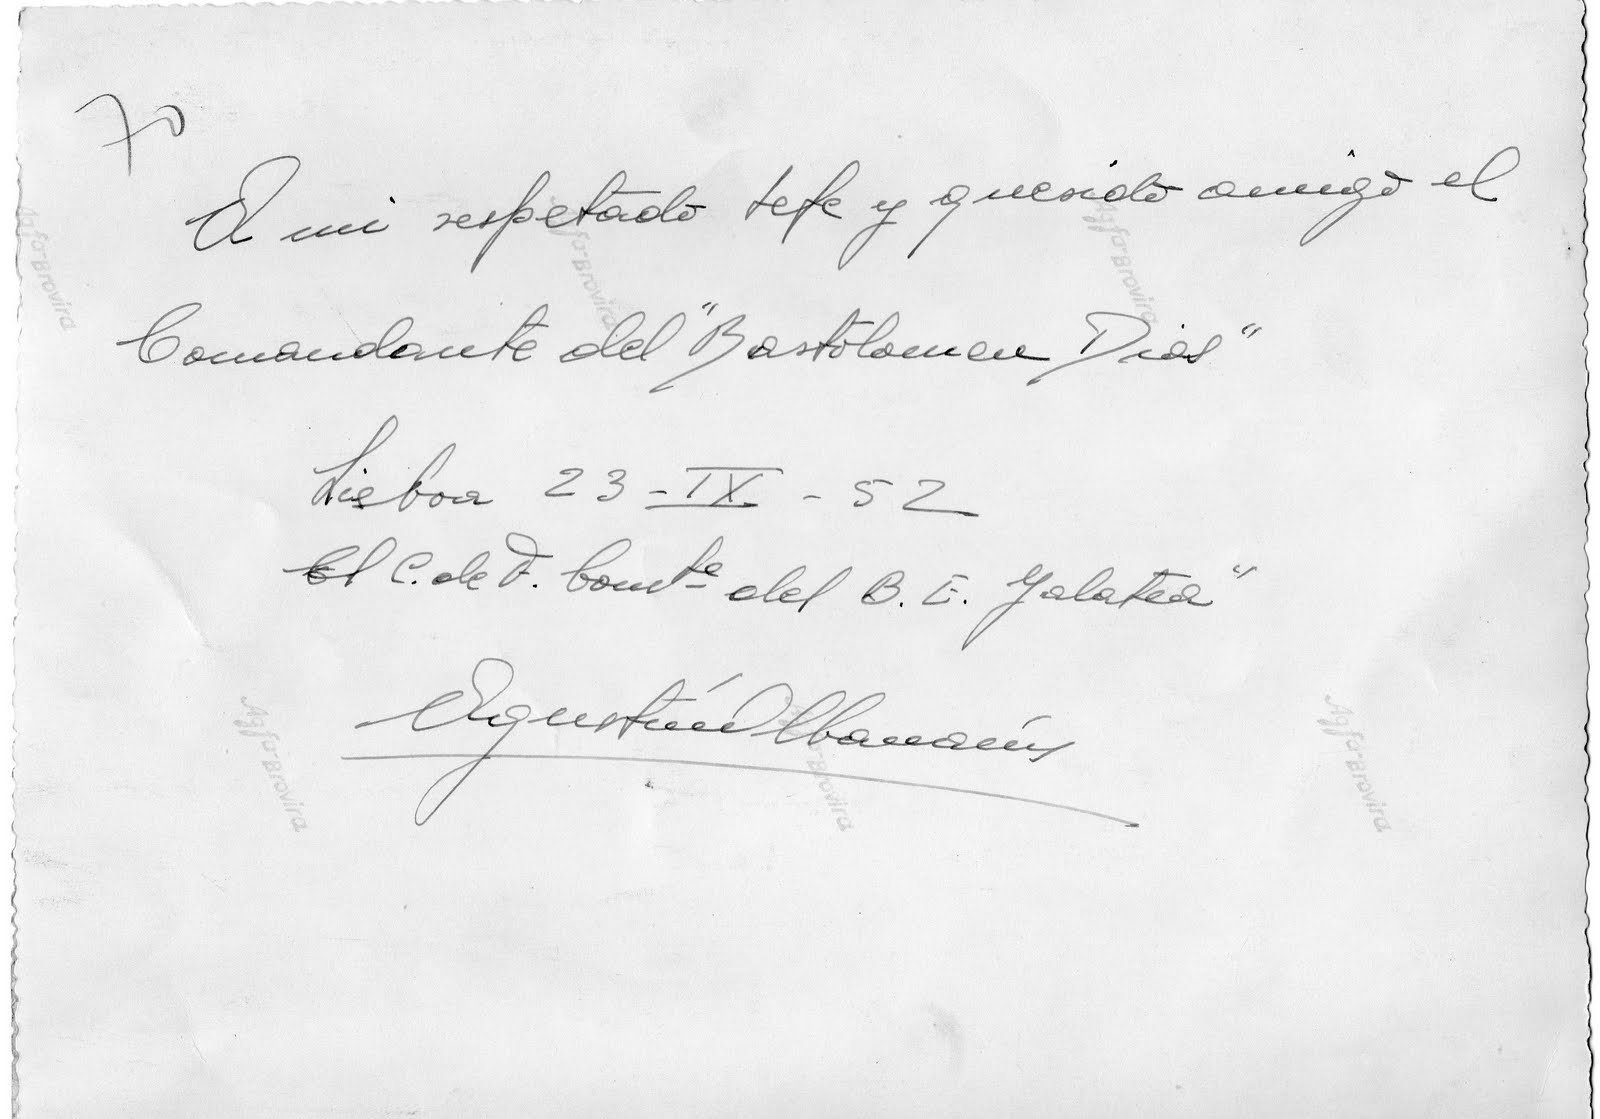 70
A mi respetado Jefe y querido amigo el
Comandante del "Bartolomeu Dias"
Lisboa 23-IX-52
El C. de F. Comte del B. E. Galatea"
Agustín
Agfa-Brovira
Agfa-Brovira
Agfa-Brovira
Agfa-Brovira
Agfa-Brovira
Agfa-Brovira